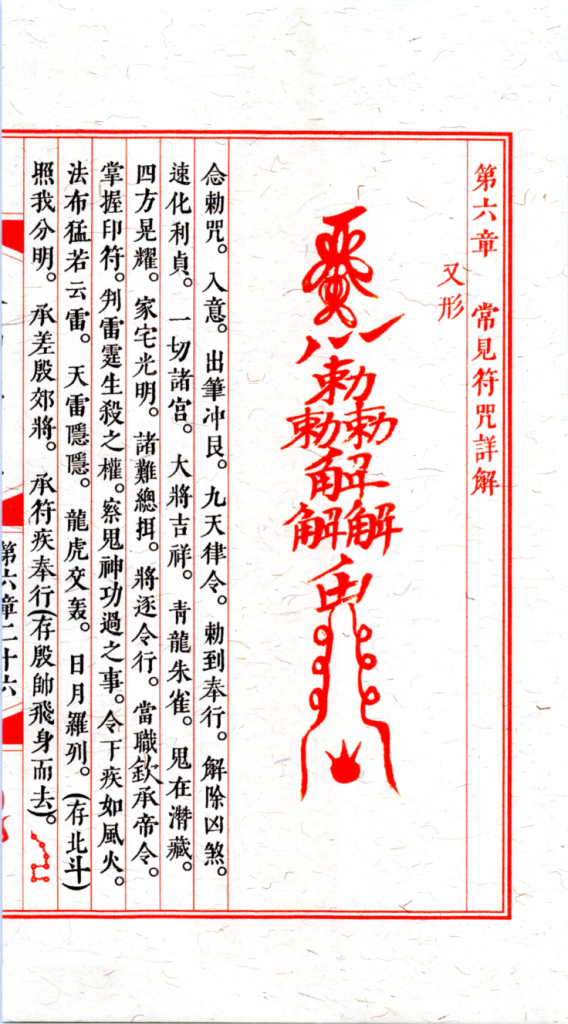 第六章 常見符咒詳解
又形
勅
勅勅
解
解解
念勅咒。入意。出筆冲艮。九天律令。勅到奉行。解除凶煞。
速化利貞。一切諸宫。大將吉祥。青龍朱雀。鬼在潛藏。
四方晃耀。家宅光明。諸難總弭。將逐令行。當職欽承帝令。
掌握印符。判雷霆生殺之權。察鬼神功過之事。令下疾如風火。
法布猛若云雷。天雷隱隱。龍虎交轟。日月羅列。(存北斗)
照我分明。承差殷郊將。承符疾奉行(存殷帥飛身而去)。
第六章二十六